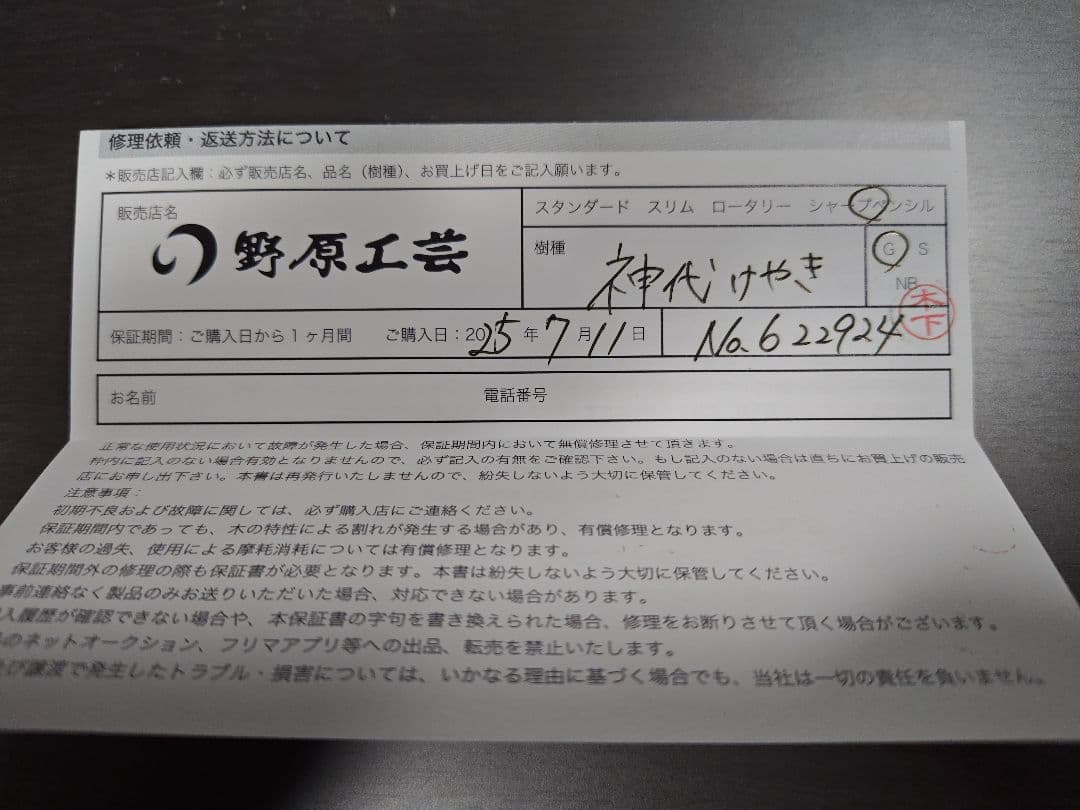 修理依頼・返送方法について
*販売店記入欄：必ず販売店名、品名（樹種）、お買上げ日をご記入願います。
販売店名
野原工芸
スタンダード スリム ロータリー シャープペンシル
樹種
神代けやき
G S
NB
木下
保証期間：ご購入日から1ヶ月間 ご購入日：2025年7月11日
No.622924
お名前 電話番号
正常な使用状況において故障が発生した場合、保証期間内において無償修理させて頂きます。
枠内に記入のない場合有効となりませんので、必ず記入の有無をご確認下さい。もし記入のない場合は直ちにお買上げの販売
店にお申し出下さい。本書は再発行いたしませんので、紛失しないよう大切に保管してください。
注意事項：
初期不良および故障に関しては、必ず購入店にご連絡ください。
保証期間内であっても、木の特性による割れが発生する場合があり、有償修理となります。
お客様の過失、使用による摩耗消耗については有償修理となります。
保証期間外の修理の際も保証書が必要となります。本書は紛失しないよう大切に保管してください。
事前連絡なく製品のみお送りいただいた場合、対応できない場合があります。
入履歴が確認できない場合や、本保証書の字句を書き換えられた場合、修理をお断りさせて頂く場合がございます。
のネットオークション、フリマアプリ等への出品、転売を禁止いたします。
び譲渡で発生したトラブル・損害については、いかなる理由に基づく場合でも、当社は一切の責任を負いません。